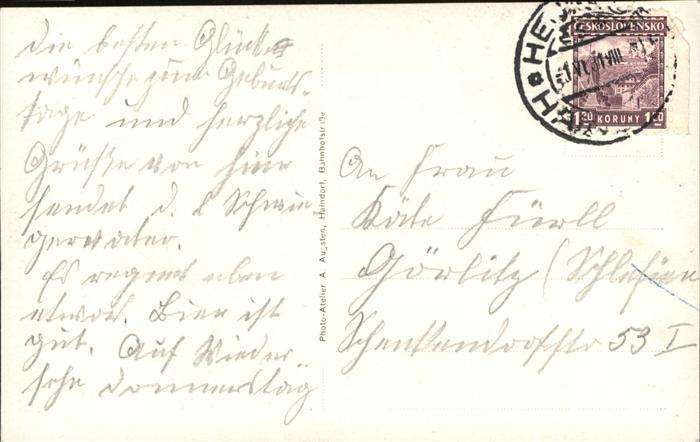 Die besten Glück
wünsche zum Geburts-
tage und herzliche
Grüße von hier
sendet d. l. Schwie-
gervater.
Es regnet eben
etwas. Bier ist
gut. Auf Wieder
sehe Donnerstag
Photo-Atelier A. Augsten, Haindorf, Bahnhofstraße
ČESKOSLOVENSKO
1.20 KORUNY 1.20
An Frau
Käte Fürll
Görlitz (Schlesien
Schenkendorfstr 53 I